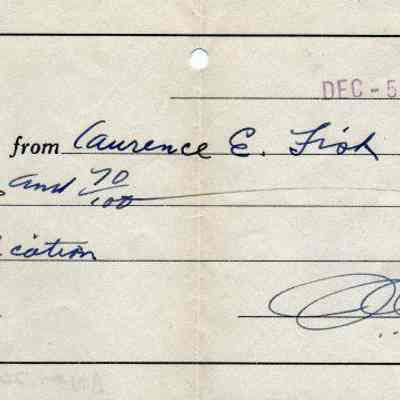 DEC - 5
from Laurence E. Fish
and 70/100
cation